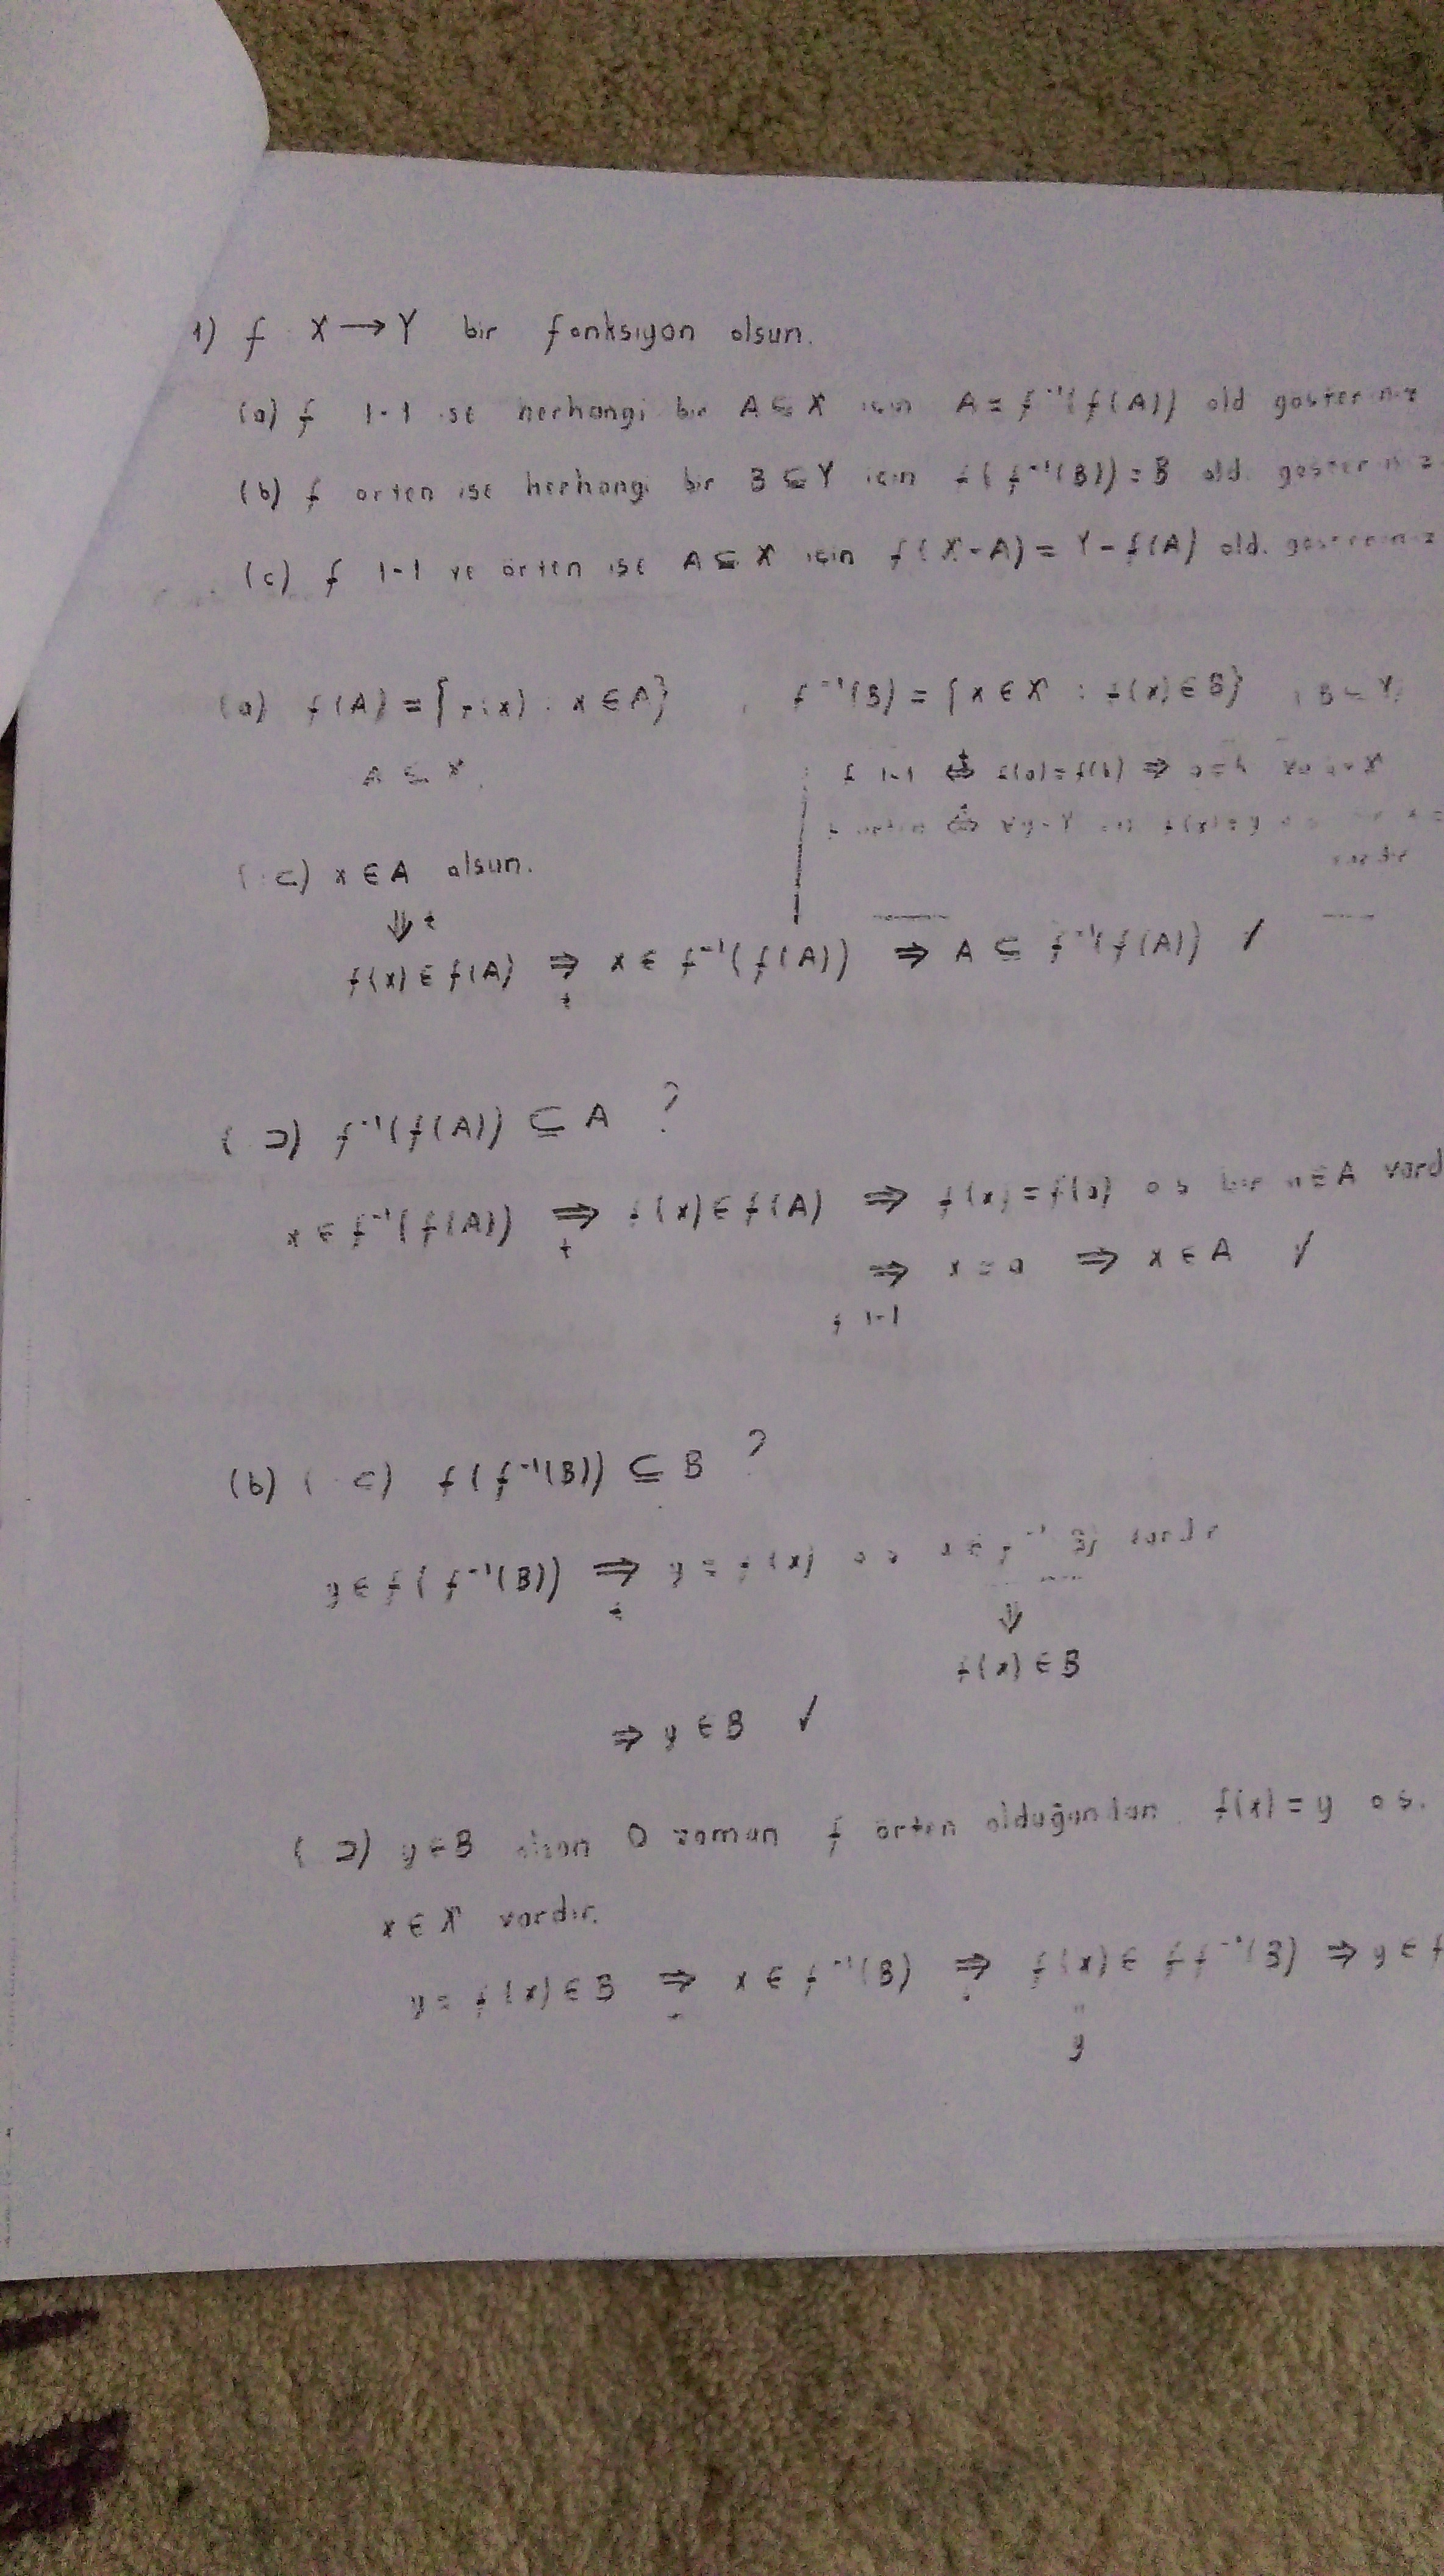 1) f X → Y bir fonksiyon olsun.
(a) f 1-1 ise herhangi bir A ⊆ X için A = f⁻¹(f(A)) old gösteriniz
(b) f örten ise herhangi bir B ⊆ Y için f(f⁻¹(B)) = B old. gösteriniz
(c) f 1-1 ve örten ise A ⊆ X için f(X-A) = Y - f(A) old. gösteriniz
(a) f(A) = {f(x) : x ∈ A} , f⁻¹(B) = {x ∈ X : f(x) ∈ B} , B ⊆ Y
A ⊆ X
f 1-1 ⇔ f(a) = f(b) ⇒ a = b
örten ⇔ ∀y f(x) = y
vardır
(⊂) x ∈ A olsun.
⇓
f(x) ∈ f(A) ⇒ x ∈ f⁻¹(f(A)) ⇒ A ⊆ f⁻¹(f(A)) ✓
(⊃) f⁻¹(f(A)) ⊆ A ?
x ∈ f⁻¹(f(A)) ⇒ f(x) ∈ f(A) ⇒ f(x) = f(a) o.ş bir a ∈ A vard
⇒ x = a ⇒ x ∈ A ✓
f 1-1
(b) (⊂) f(f⁻¹(B)) ⊆ B ?
y ∈ f(f⁻¹(B)) ⇒ y = f(x) vardır
⇓
f(x) ∈ B
⇒ y ∈ B ✓
(⊃) y ∈ B olsun O zaman f örten olduğundan f(x) = y o.ş.
x ∈ X vardır.
y = f(x) ∈ B ⇒ x ∈ f⁻¹(B) ⇒ f(x) ∈ f f⁻¹(B) ⇒ y ∈ f
"
y